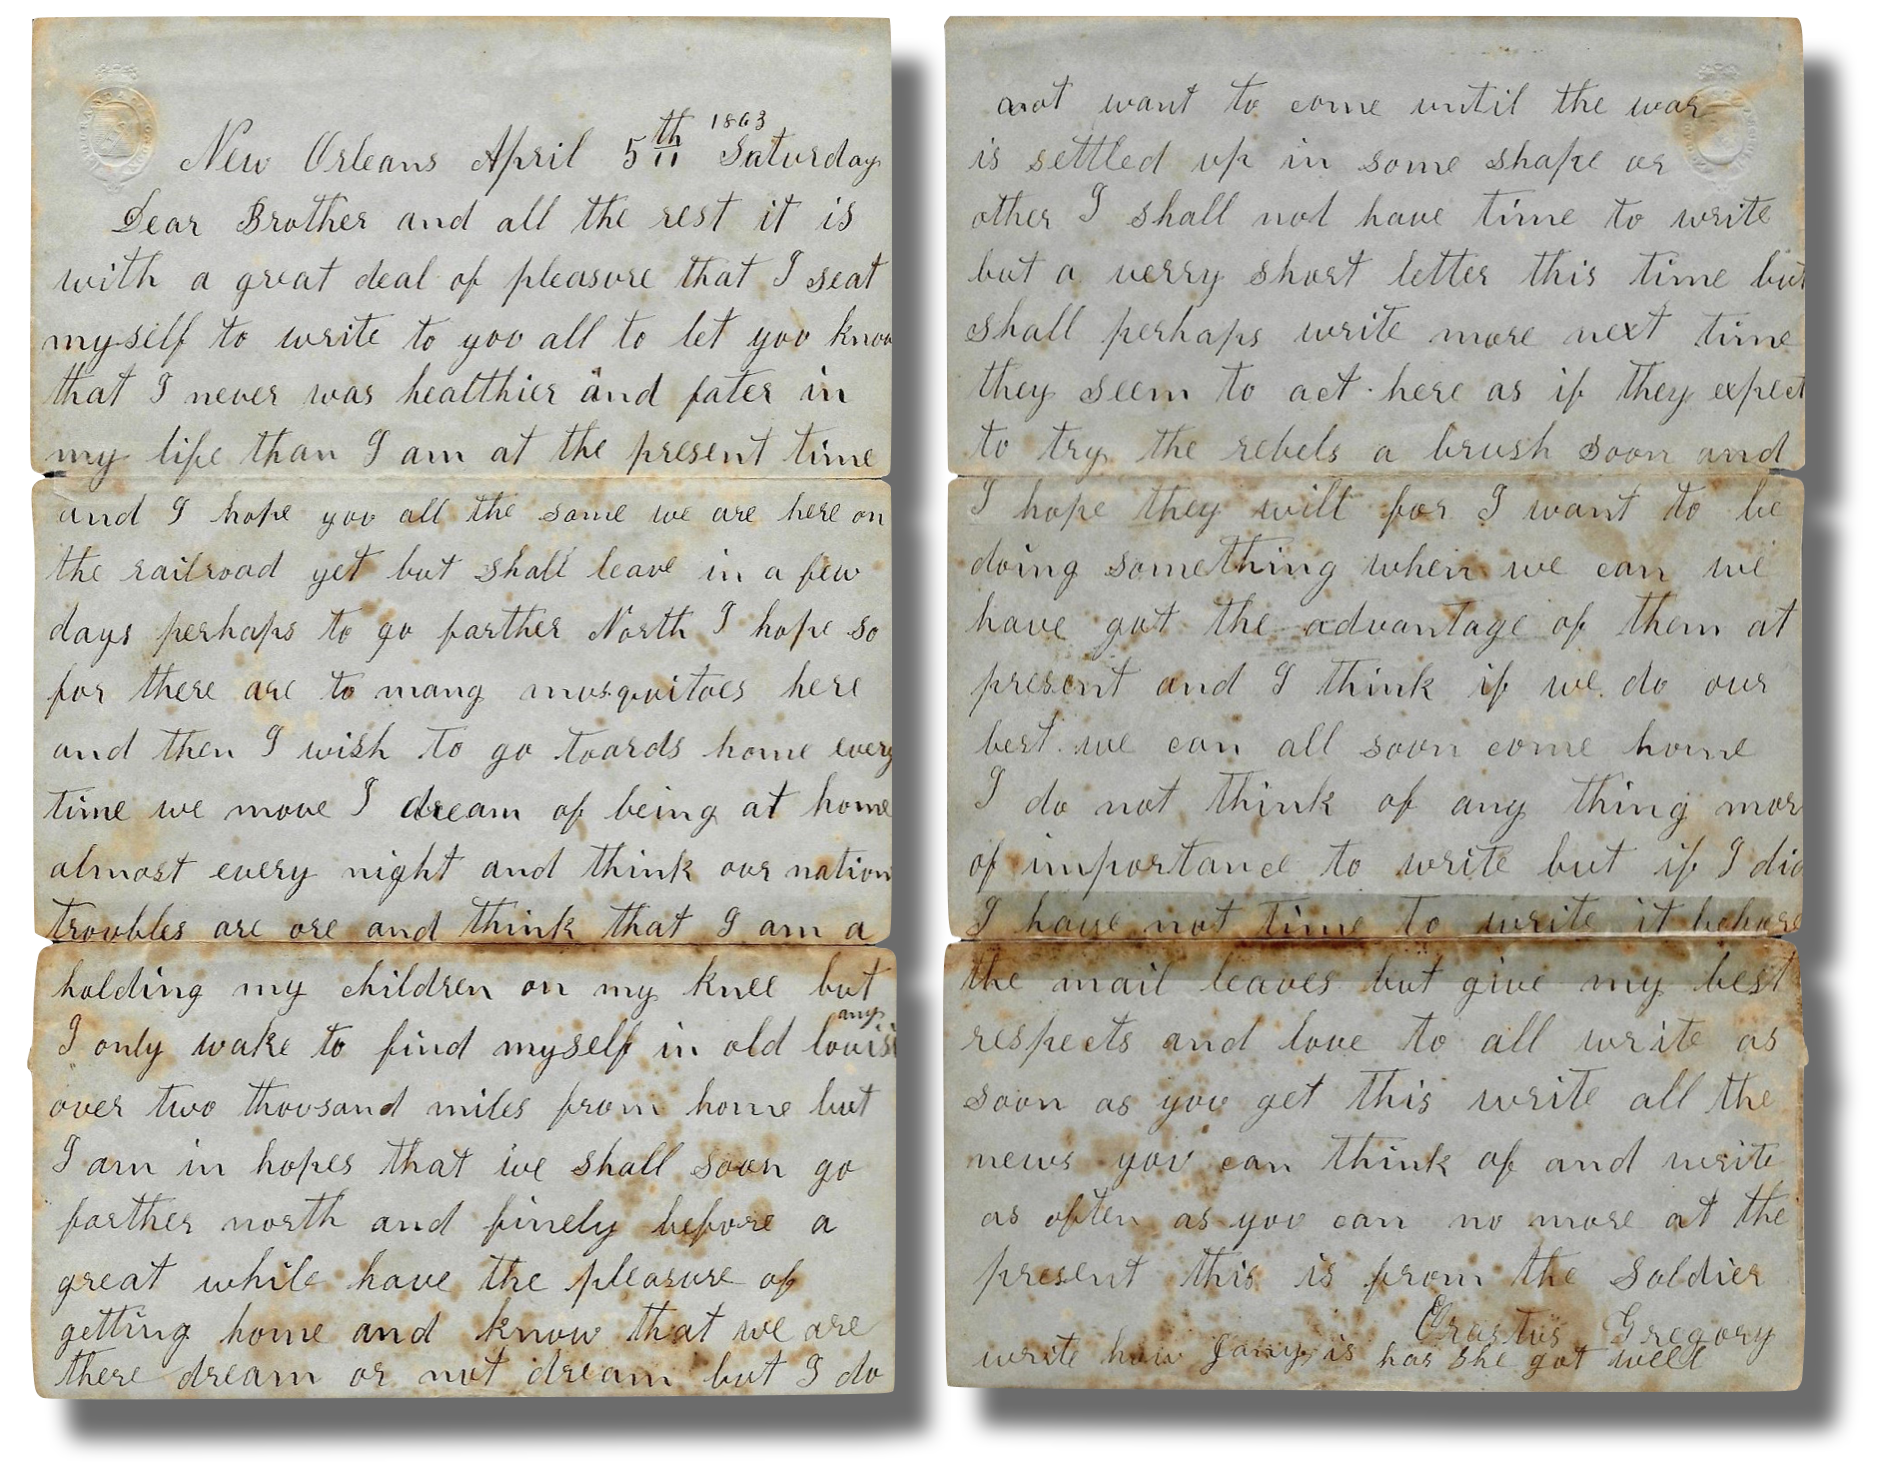 New Orleans April 5th 1863 Saturday
Dear Brother and all the rest it is
with a great deal of pleasure that I seat
myself to write to you all to let you know
that I never was healthier and fater in
my life than I am at the present time
and I hope you all the same we are here on
the railroad yet but shall leave in a few
days perhaps to go farther North I hope so
for there are to many musquitoes here
and then I wish to go toards home every
time we move I dream of being at home
almost every night and think our nation
troubles are ore and think that I am a
holding my children on my knee but
I only wake to find myself in old louisi any
over two thousand miles from home but
I am in hopes that we shall soon go
farther north and finely before a
great while have the pleasure of
getting home and know that we are
there dream or not dream but I do
not want to come until the war
is settled up in some shape or
other I shall not have time to write
but a verry short letter this time but
shall perhaps write more next time
they seem to act here as if they expect
to try the rebels a brush soon and
I hope they will for I want to be
doing something when we can we
have got the advantage of them at
present and I think if we do our
best we can all soon come home
I do not think of any thing mor
of importance to write but if I did
I have not time to write it before
the mail leaves but give my best
respects and love to all write as
soon as you get this write all the
news you can think of and write
as often as you can no more at the
present this is from the Soldier
Erastus Gregory
write how is has she got well